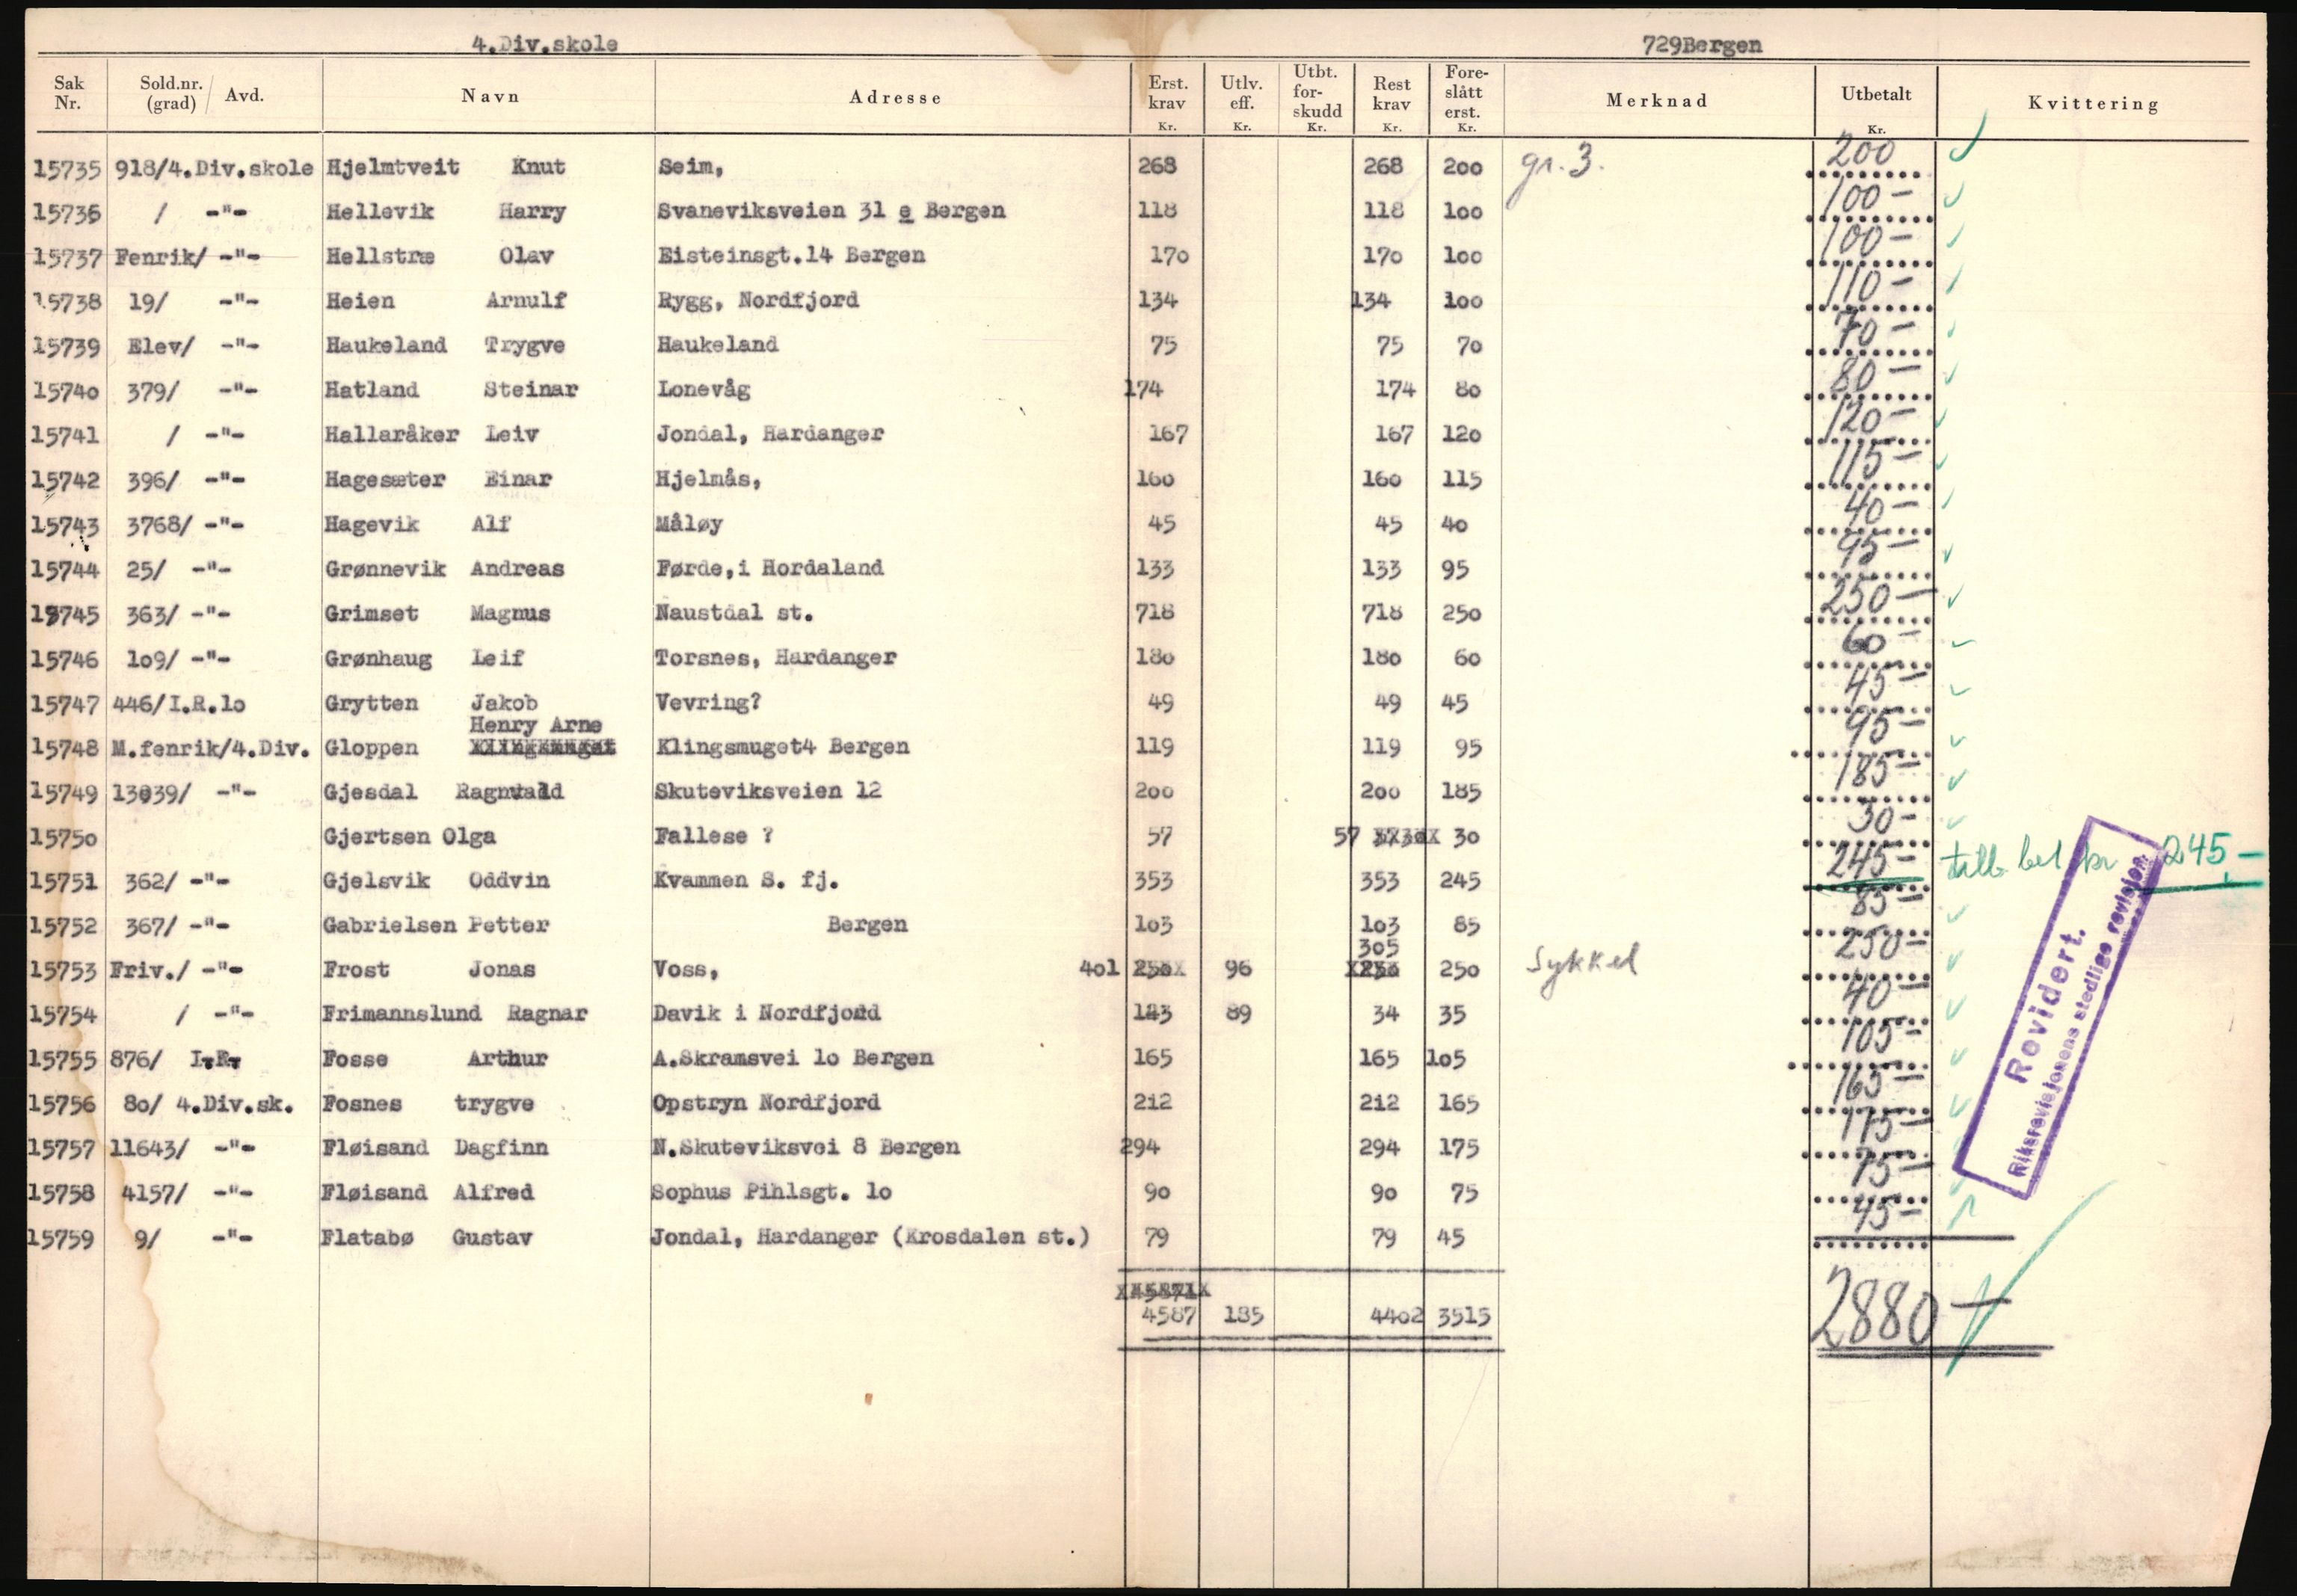 4.Div.skole 729Bergen
Sak Nr. Sold.nr. (grad) / Avd. Navn Adresse Erst. krav Kr. Utlv. eff. Kr. Utbt. for- skudd Kr. Rest krav Kr. Fore- slått erst. Kr. Merknad Utbetalt Kr. Kvittering
15735 918/4.Div.skole Hjelmtveit Knut Seim, 268 268 200 gr. 3. 200
15736 / -"- Hellevik Harry Svaneviksveien 31 e Bergen 118 118 100 100-
15737 Fenrik/ -"- Hellstræ Olav Eisteinsgt.14 Bergen 170 170 100 100-
15738 19/ -"- Heien Arnulf Rygg, Nordfjord 134 134 100 110-
15739 Elev/ -"- Haukeland Trygve Haukeland 75 75 70 70-
15740 379/ -"- Hatland Steinar Lonevåg 174 174 80 80-
15741 / -"- Hallaråker Leiv Jondal, Hardanger 167 167 120 120-
15742 396/ -"- Hagesæter Einar Hjelmås, 160 160 115 115-
15743 3768/ -"- Hagevik Alf Måløy 45 45 40 40-
15744 25/ -"- Grønnevik Andreas Førde,i Hordaland 133 133 95 95-
15745 363/ -"- Grimset Magnus Naustdal st. 718 718 250 250-
15746 109/ -"- Grønhaug Leif Torsnes, Hardanger 180 180 60 60-
15747 446/I.R.10 Grytten Jakob Vevring? 49 49 45 45-
Henry Arne
15748 M.fenrik/4.Div. Gloppen Klingsmuget Klingsmuget4 Bergen 119 119 95 95-
15749 13039/ -"- Gjesdal Ragnvald Skuteviksveien 12 200 200 185 185-
15750 Gjertsen Olga Fallese ? 57 57 30 30-
15751 362/ -"- Gjelsvik Oddvin Kvammen S. fj. 353 353 245 245- tilb. bet. kr 245-
15752 367/ -"- Gabrielsen Petter Bergen 103 103 85 85-
305
15753 Friv./ -"- Frost Jonas Voss, 401 250 96 250 250 Sykkel 250-
15754 / -"- Frimannslund Ragnar Davik i Nordfjord 123 89 34 35 40-
15755 876/ I.R. Fosse Arthur A.Skramsvei 10 Bergen 165 165 105 105-
15756 80/ 4.Div.sk. Fosnes trygve Opstryn Nordfjord 212 212 165 165-
15757 11643/ -"- Fløisand Dagfinn N.Skuteviksvei 8 Bergen 294 294 175 175-
15758 4157/ -"- Fløisand Alfred Sophus Pihlsgt. 10 90 90 75 75-
15759 9/ -"- Flatabø Gustav Jondal, Hardanger (Krosdalen st.) 79 79 45 45-
4587 185 4402 3515 2880-
Revidert.
Riksrevisjonens stedlige revisjon.